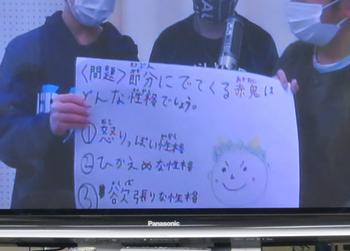 〈問題〉節分にでてくる赤鬼は
どんな性格でしょう。
①怒りっぽい性格
②ひかえめな性格
③欲張りな性格
Panasonic